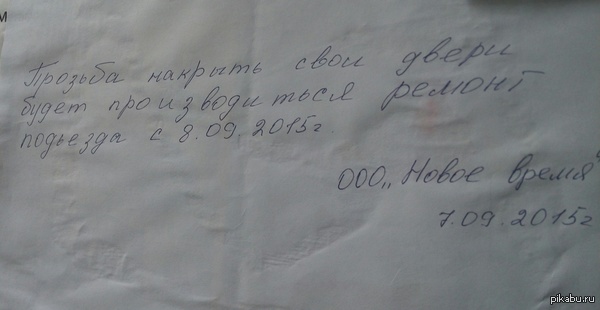 Прозьба накрыть свои двери
будет производиться ремонт
подьезда с 8.09.2015г.
ООО „Новое время"
7.09.2015г
pikabu.ru